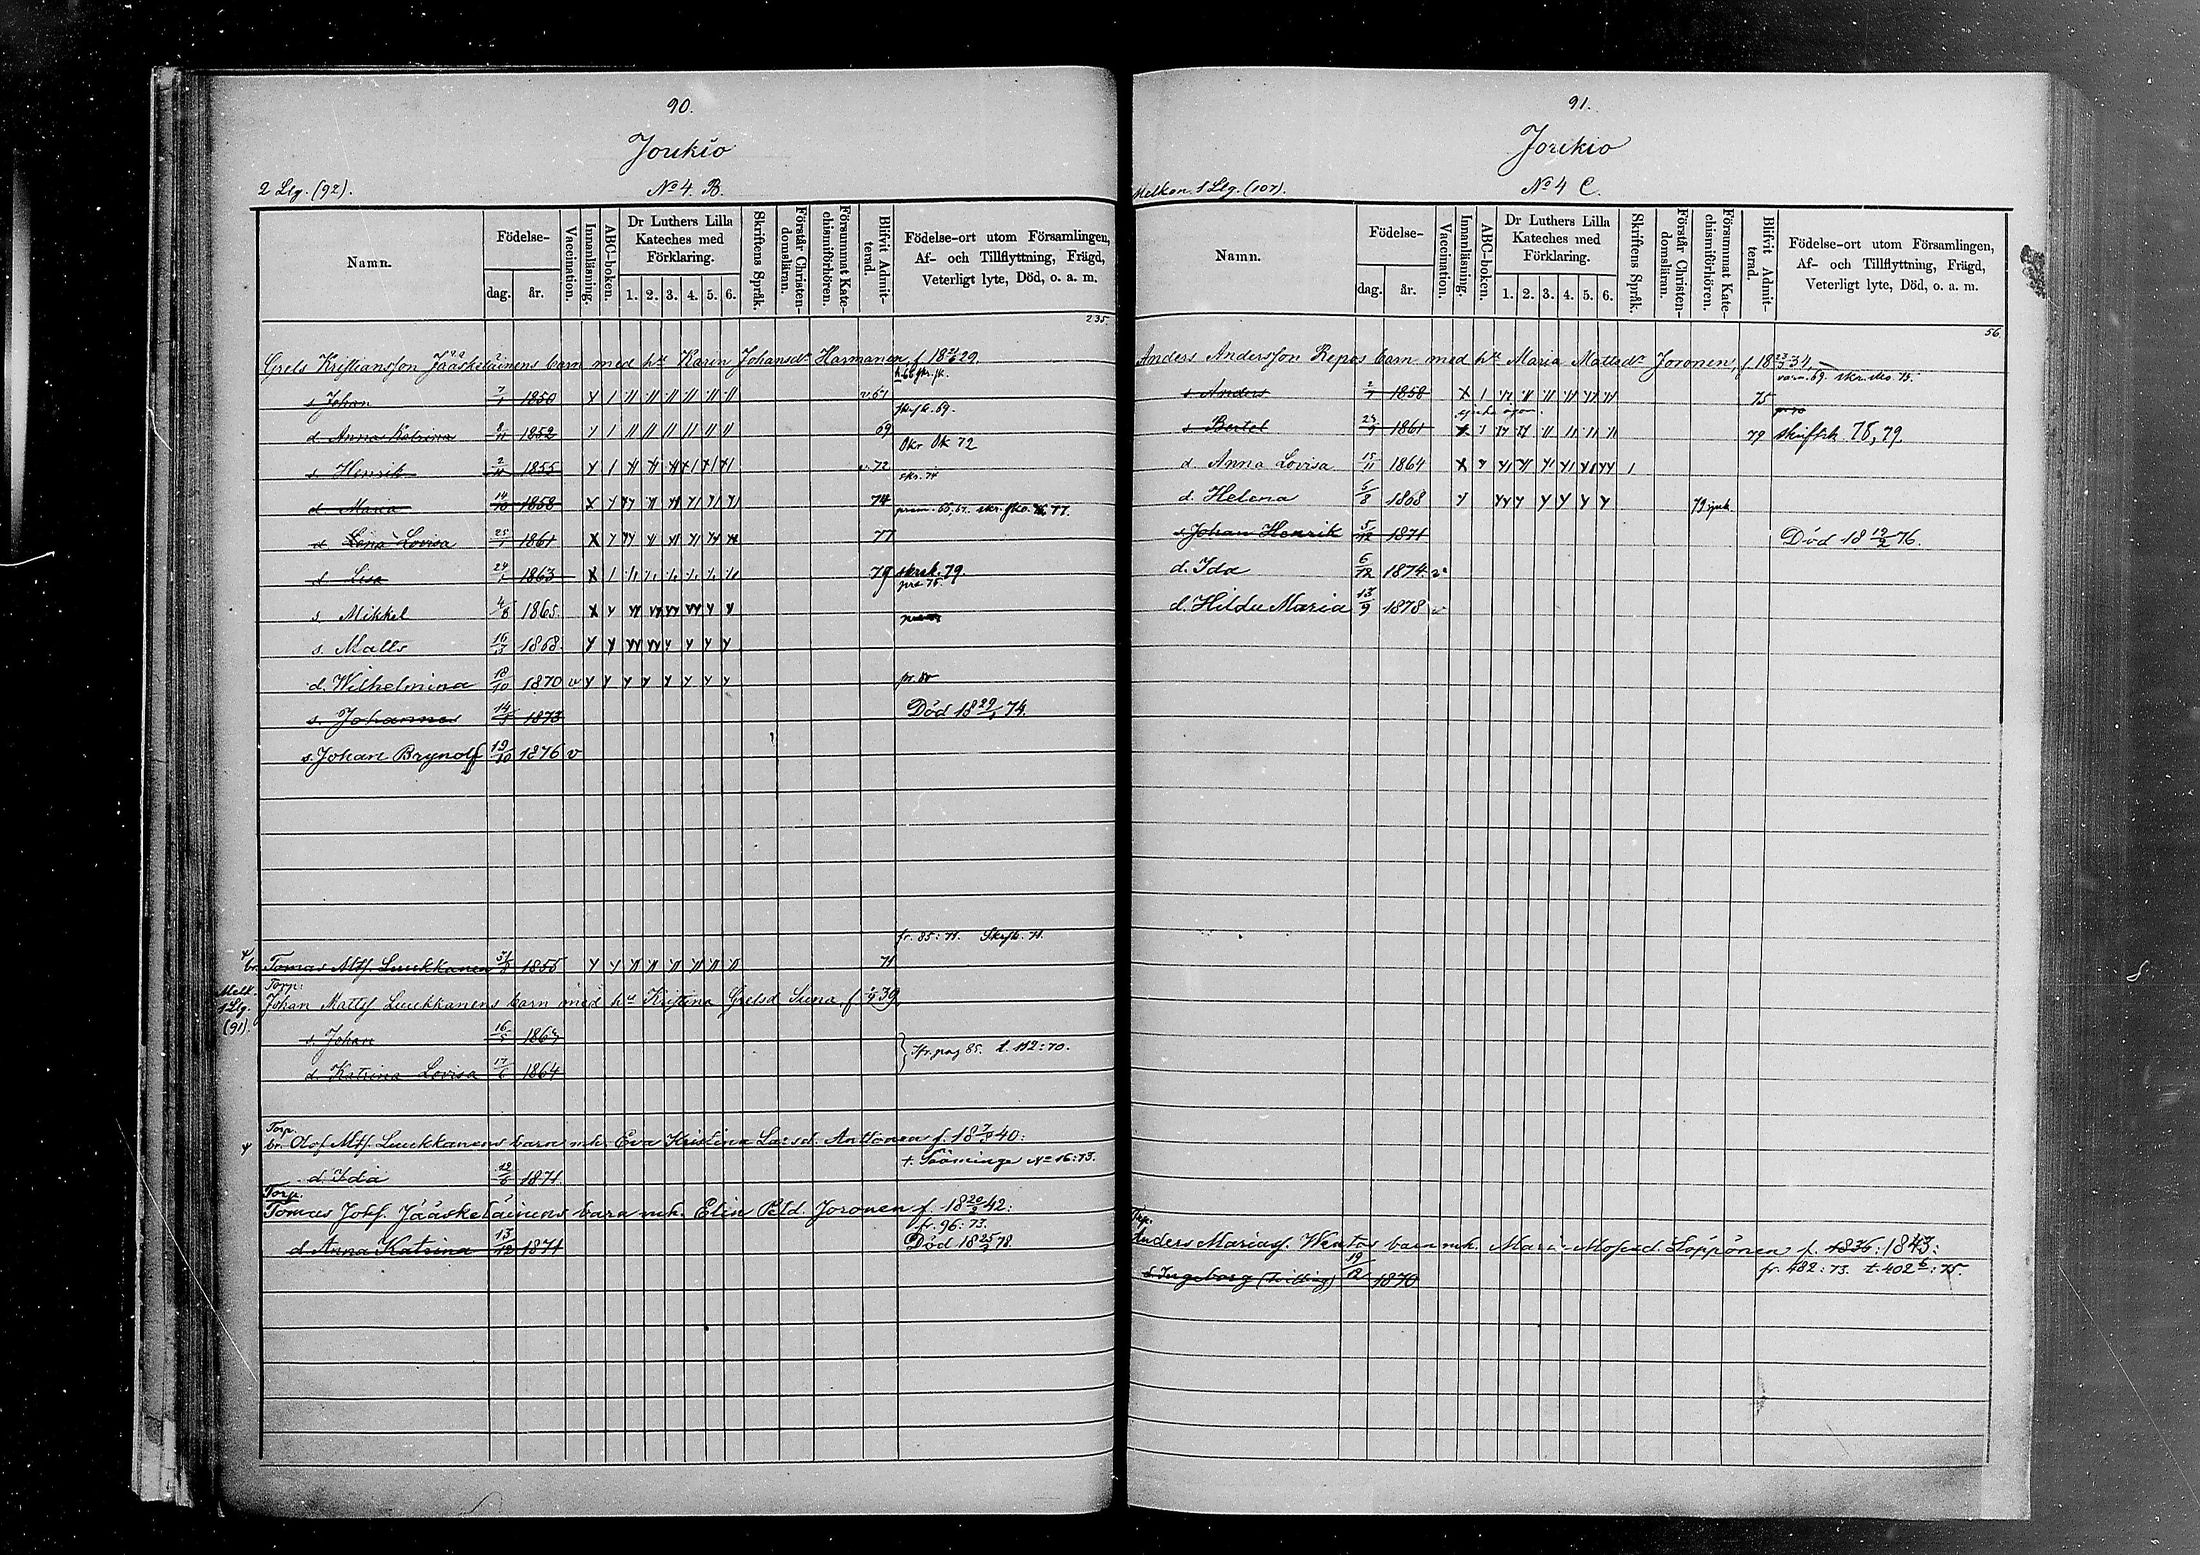 90.
Joukio
2 Llg. (92).
No 4. B.
Namn.
Födelse-
dag.
år.
Vaccination.
Innanläsning.
ABC-boken.
Dr Luthers Lilla
Kateches med
Förklaring.
1. 2. 3. 4. 5. 6.
Skriftens Språk.
Förstår Christen-
domslärån.
Försummat Kate-
chismiförhören.
Blifvit Admit-
terad.
Födelse-ort utom Församlingen,
Af- och Tillflyttning, Frägd,
Veterligt lyte, Död, o. a. m.
235.
Grels Kristiansson Jääskeläinens barn med hu Karin Johansdr Harmanen f.
s. Johan 7/1 1850 v 67
d. Anna Katrina 1852 69 skrsk. 69.
s. Henrik 1855 v. 72 Skr. sk 72
d. Maria 14/10 1858 74 skr. 74
d. Lena Lovisa 25/1 1861 77
d. Lisa 1863 79 skrsk. 79.
s. Mikkel 4/8 1865.
s. Matts 16/3 1868.
d. Wilhelmina 18/10 1870 v pr. 80
s. Johannes 1873 Död 18 29/1 74.
s. Johan Brynolf 19/10 1876 v
fr. 85:71. Skrsk. 71.
br. Tomas Mtss. Luukkanen 1855 71
Melk.
1 Llg.
(91).
Torp:
Johan Mattss Luukkanens barn med hu Kristina Grelsd Suna, f. 39
s. Johan 16/5
d. Katrina Lovisa 17/6 1864
Ifr. pag 85. t. 112:70.
Torp.
br. Olof Mtss. Luukkanens barn mh. Eva Kristina Larsd. Anttonen f. 18 40:
d. Ida 1871. t. Sääminge No 16:73.
Torp.
Tomas Johss. Jääskeläinens barn mh. Elin Petd. Joronen f. 18 20/2 42:
fr. 96:73.
d. Anna Katrina 13/12 1871 Död 18 25/3 78.
91.
Joukio
Melkon. 1 Llg. (107).
No 4 C.
Namn.
Födelse-
dag.
år.
Vaccination.
Innanläsning.
ABC-boken.
Dr Luthers Lilla
Kateches med
Förklaring.
1. 2. 3. 4. 5. 6.
Skriftens Språk.
Förstår Christen-
domsläran.
Försummat Kate-
chismiförhören.
Blifvit Admit-
terad.
Födelse-ort utom Församlingen,
Af- och Tillflyttning, Frägd,
Veterligt lyte, Död, o. a. m.
56.
Anders Andersson Repos barn med hu Maria Mattsdr Joronen, f. 18 23/3 34,
s. Anders 1858 75
sjuka ögon.
s. Bertel 1861 79 skriftsk 78, 79.
d. Anna Lovisa 15/11 1864
d. Helena 6/8 1868 79 sjuk
s. Johan Henrik 5/12 1871 Död 18 12/2 76.
d. Ida 6/12 1874. v
d. Hilda Maria 13/9 1878 v
Torp.
Anders Mariass. Wentos barn mh. Maria Mosesd. Loppönen f. 1836: 1843:
d. Ingeborg (Tvilling) 19/12 1870 fr. 482:73. t. 402 :75.